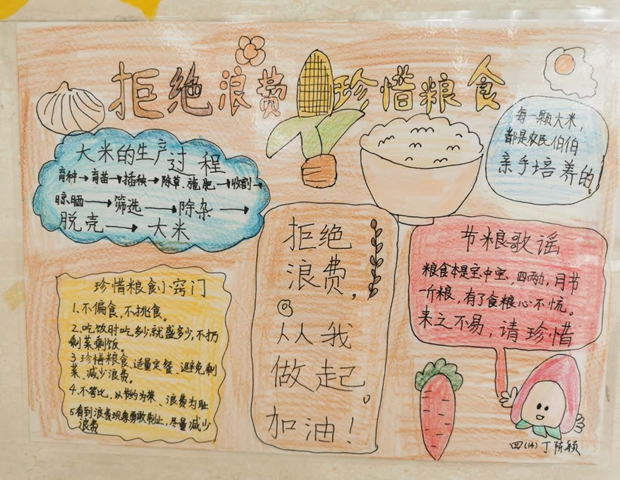 拒绝浪费 珍惜粮食
大米的生产过程
育种→育苗→插秧→除草、施肥→收割→
晾晒→筛选→除杂→
脱壳→大米
每一颗大米,
都是农民伯伯
亲手培养的!
拒绝
浪费,
从我
做起。
加油!
节粮歌谣
粮食本是宝中宝,四两,月节
一斤粮,有了食粮心不慌。
来之不易,请珍惜
珍惜粮食小窍门
1、不偏食,不挑食。
2、吃饭时吃多少,就盛多少,不扔
剩菜剩饭。
3、珍惜粮食,适量定餐,避免剩
菜,减少浪费。
4、不攀比,以节约为荣,浪费为耻
5、看到浪费现象勇敢制止,尽量减少
浪费
四(14)丁陈颖